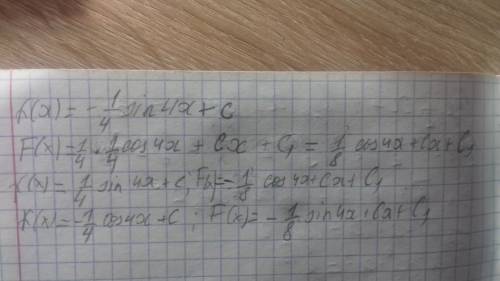 f(x) = -1/4 sin4x + C
F(x) = 1/4 · 1/4 cos4x + Cx + C₁ = 1/8 cos4x + Cx + C₁
f(x) = 1/4 sin4x + C; F(x) = -1/8 cos4x + Cx + C₁
f(x) = -1/4 cos4x + C; F(x) = -1/8 sin4x + Cx + C₁